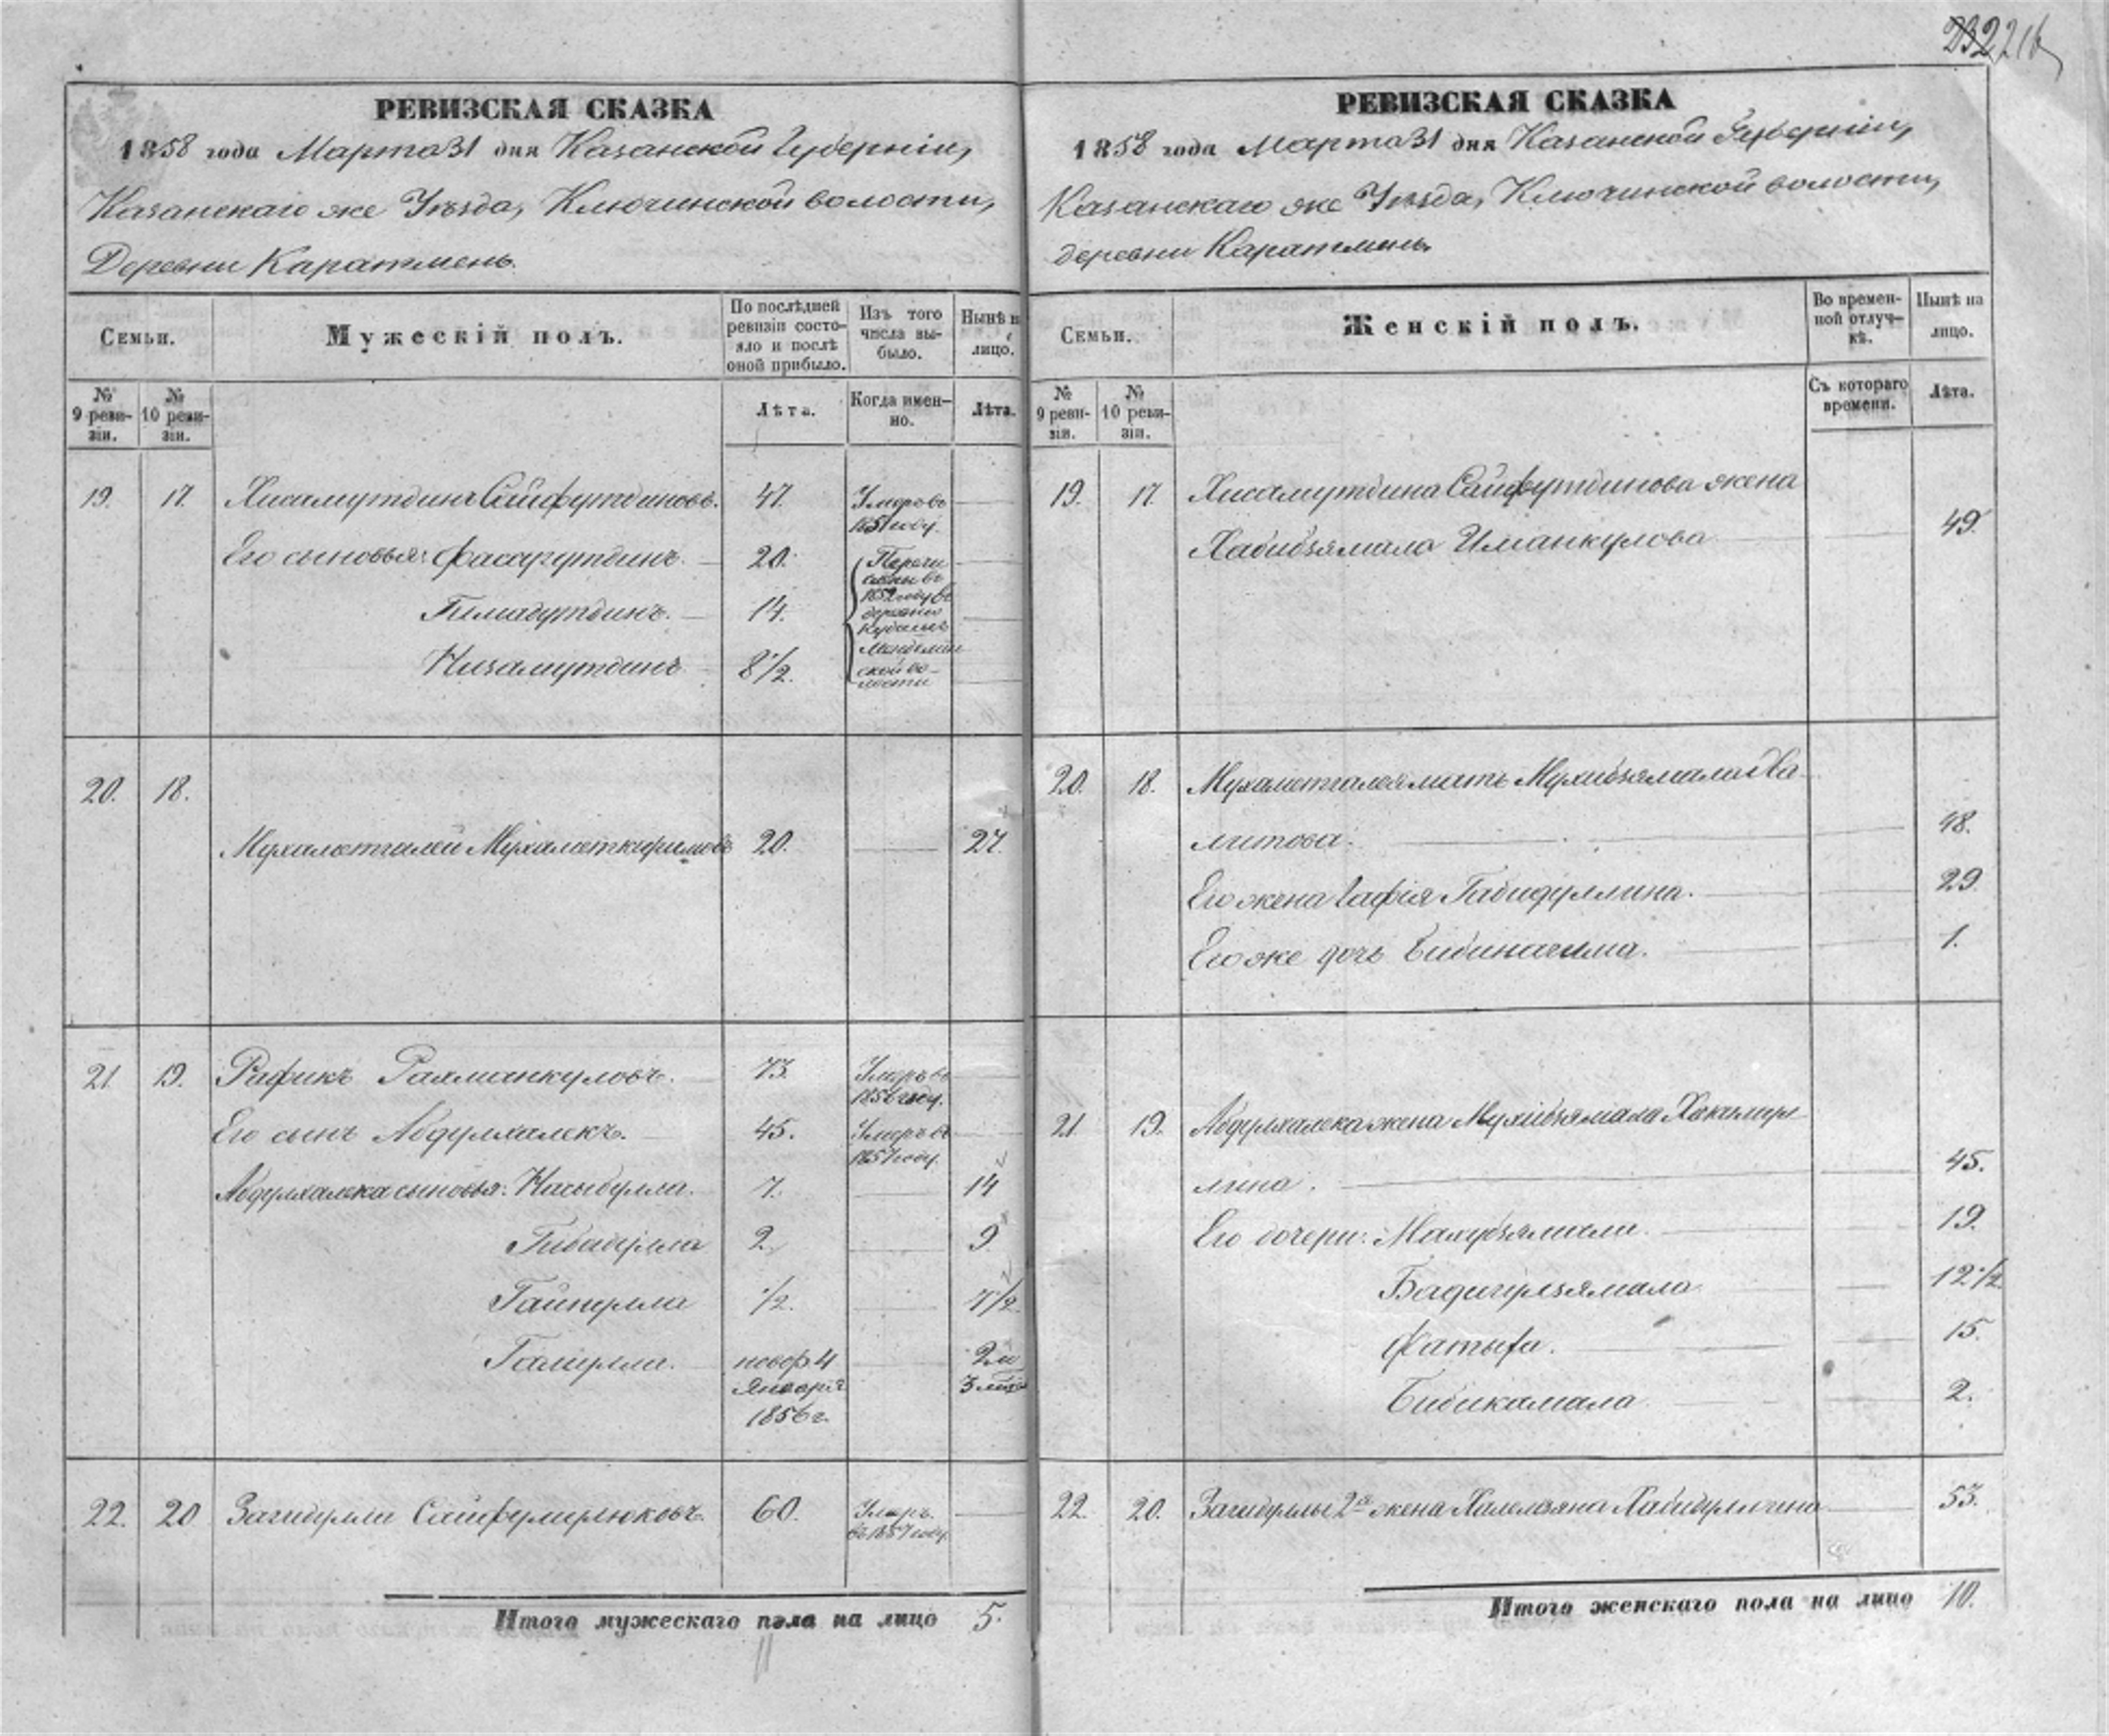 232 216
РЕВИЗСКАЯ СКАЗКА
1858 года Марта 31 дня Казанской Губерніи,
Казанскаго же Уѣзда, Ключинской волости,
Деревни Каратмень.
Семьи.
Мужескій полъ.
По послѣдней ревизіи состояло и послѣ оной прибыло.
Изъ того числа выбыло.
Нынѣ н лицо.
№ 9 ревизіи.
№ 10 ревизіи.
Лѣта.
Когда именно.
Лѣта.
19. 17. Хисамутдинъ Сайфутдиновъ. 47. Умеръ въ 1851 году.
Его сыновья: Фасахутдинъ. 20. Перечислены въ 1852 году въ деревню
Гимадутдинъ. 14.
Низамутдинъ 8 1/2. ской волости
20. 18.
Мухаметгалей Мухаметкаримовъ 20. 27.
21. 19. Рафикъ Рахманкуловъ. 73. Умеръ въ 1856 году.
Его сынъ Абдулхалекъ. 45. Умеръ въ 1851 году.
Абдулхалека сыновья: Насыбулла. 7. 14
Гибадулла 2. 9
Гайнулла 1/2. 7 1/2.
Галиулла. новор. 4 Января 1856 г. 2 л 3 мѣся
22. 20 Загидулла Сайфулмулюковъ. 60. Умеръ. въ 1857 году.
Итого мужескаго пола на лицо 5.
РЕВИЗСКАЯ СКАЗКА
1858 года Марта 31 дня Казанской Губерніи,
Казанскаго же Уѣзда, Ключинской волости,
деревни Каратмень.
Семьи.
Женскій полъ.
Во временной отлучкѣ.
Нынѣ на лицо.
№ 9 ревизіи.
№ 10 ревизіи.
Съ котораго времени.
Лѣта.
19. 17. Хисамутдина Сайфутдинова жена
Хабибзямала Иманкулова 49.
20. 18. Мухаметгалея мать Мухибзямала Ха-
митова. 48.
Его жена Гафія Габидуллина. 29.
Его же дочь Бибинагима. 1.
21. 19. Абдулхалека жена Мухибзямала Хакимул-
лина. 45.
Его дочери: Махубзямала. 19.
Бадигулзямала 12 1/2
Фатыха. 15.
Бибикамала 2.
22. 20. Загидуллы 2я жена Халелзяна Хабидуллина 53.
Итого женскаго пола на лицо 10.